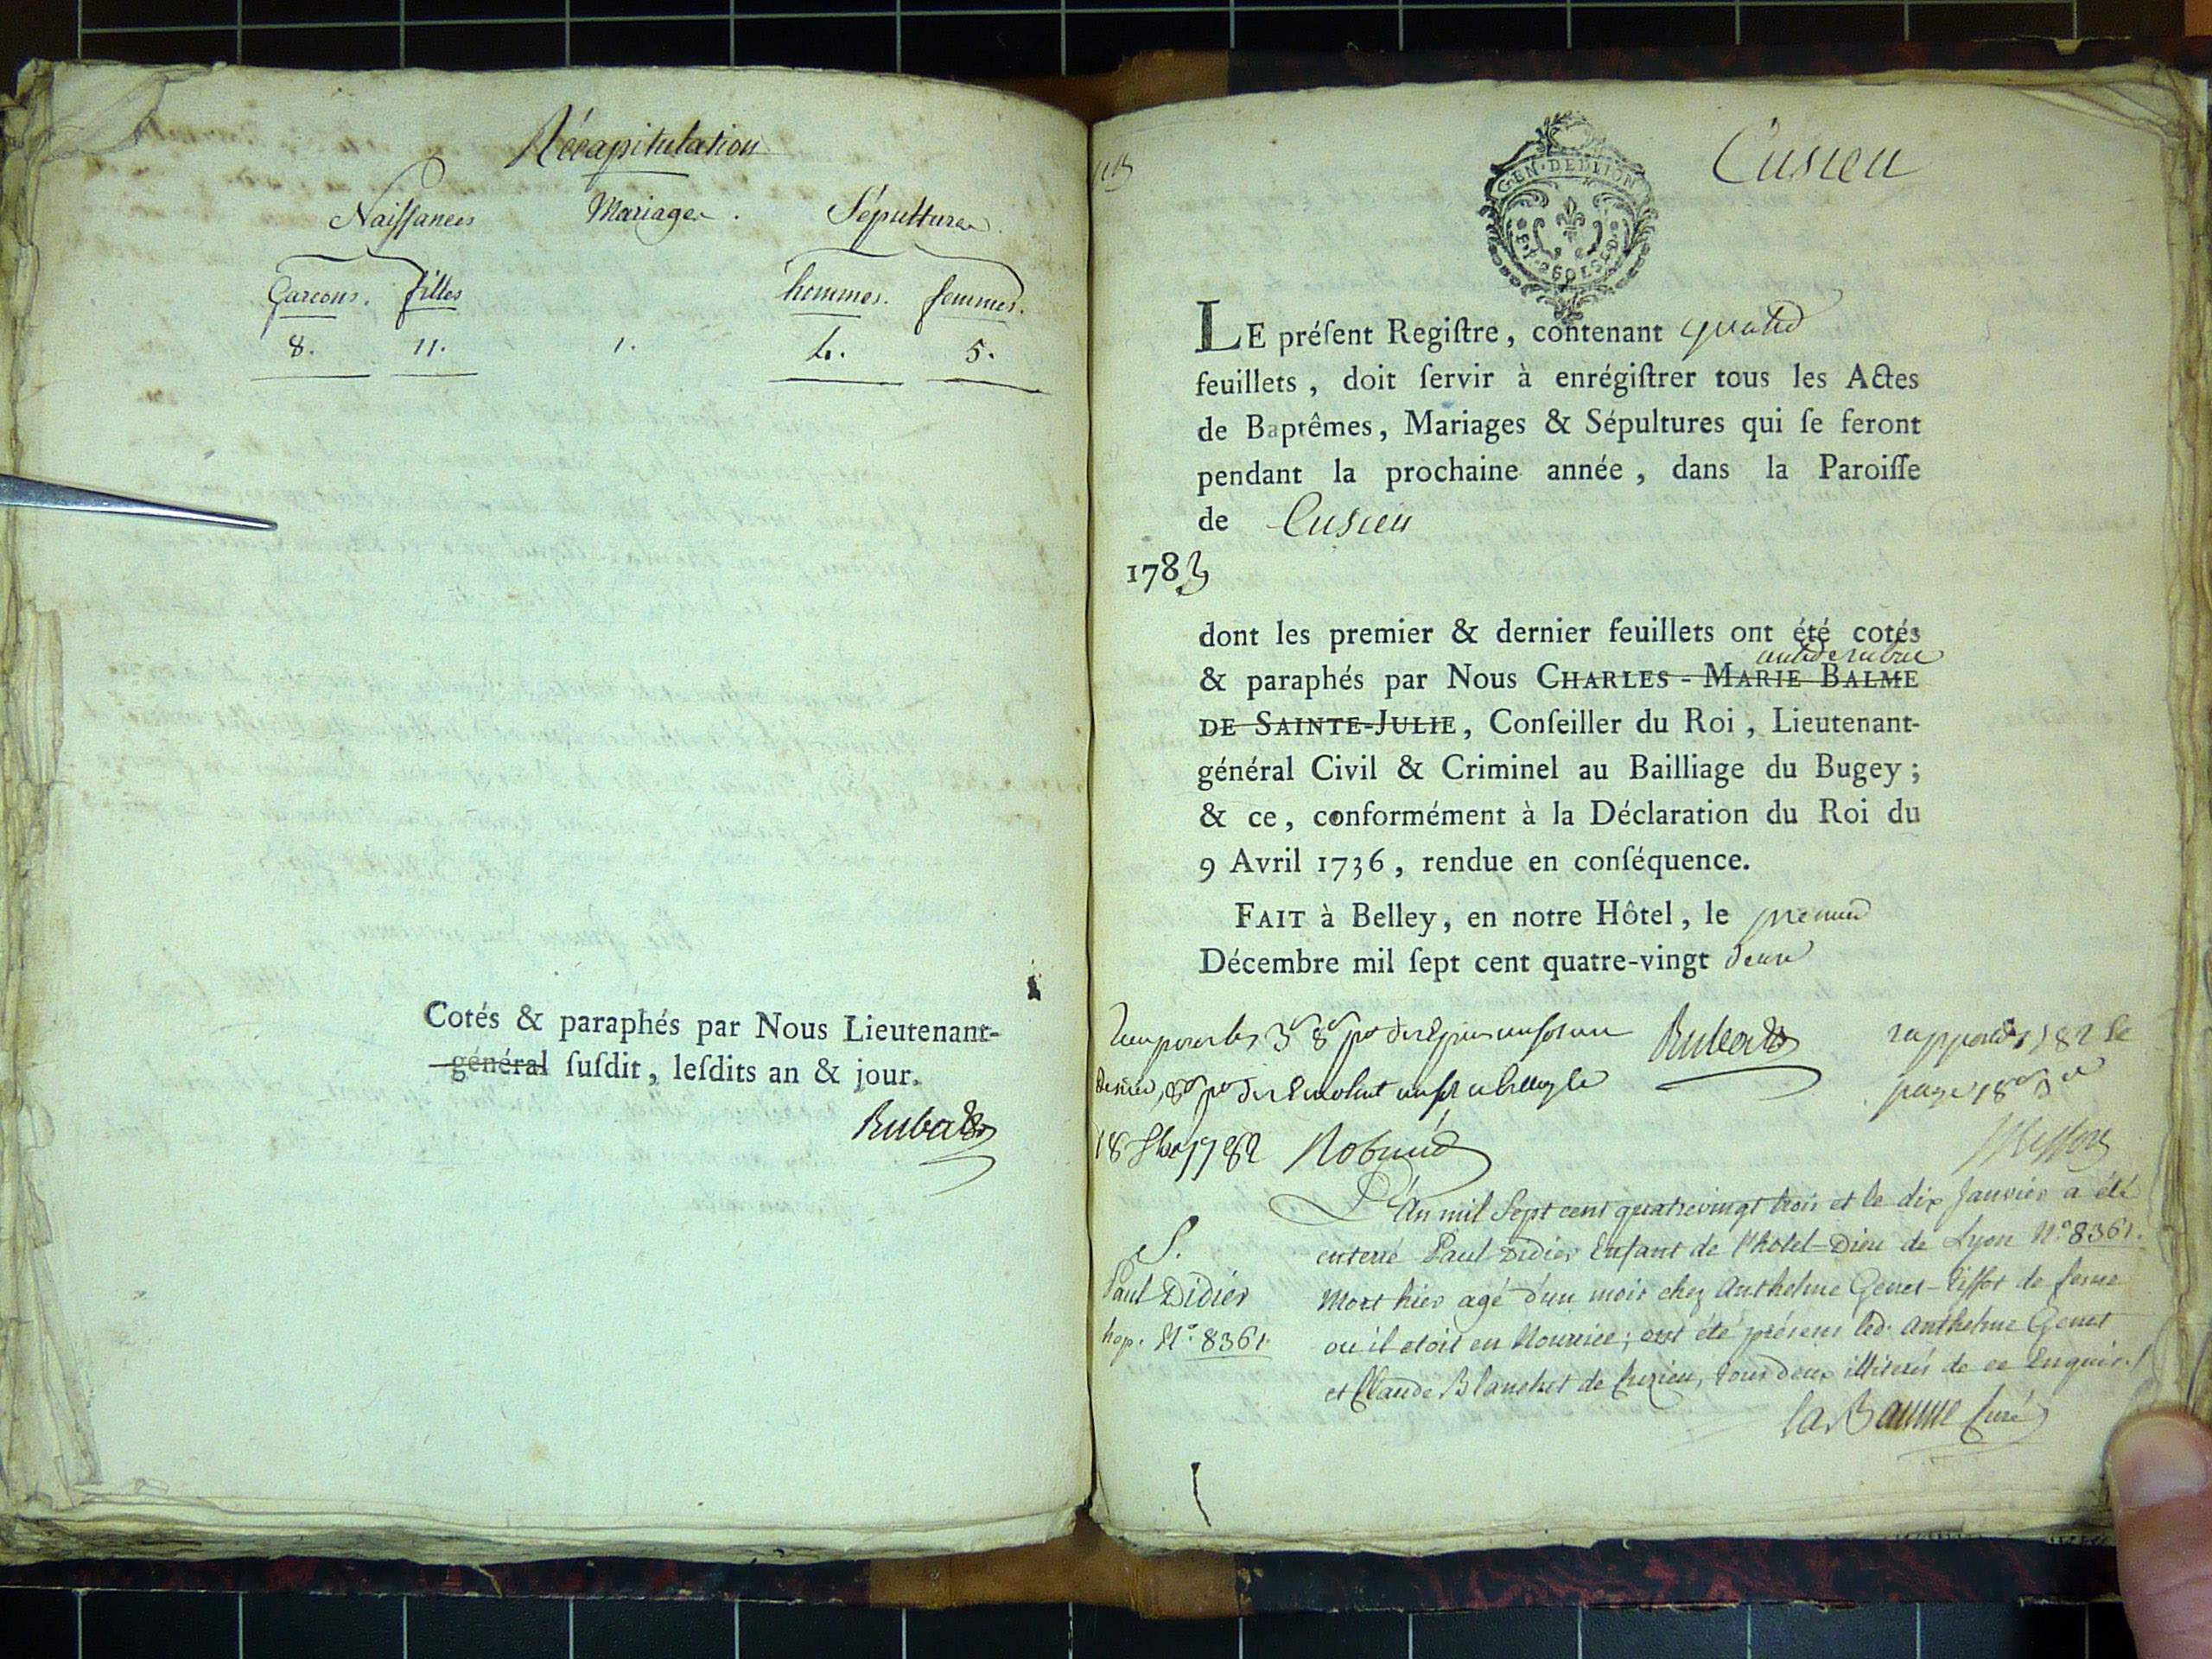 Récapitulation
Naissances Mariages. Sépultures.
Garçons. filles hommes. femmes.
8. 11. 1. 4. 5.
Cotés & paraphés par Nous Lieutenant-
général ſuſdit, leſdits an & jour.
Cusieu
GEN. DE DIJON
LE préſent Regiſtre, contenant
feuillets, doit ſervir à enrégiſtrer tous les Actes
de Baptêmes, Mariages & Sépultures qui ſe feront
pendant la prochaine année, dans la Paroiſſe
de Cusieu
1783
dont les premier & dernier feuillets ont été cotés
& paraphés par Nous CHARLES-MARIE BALME
DE SAINTE-JULIE, Conſeiller du Roi, Lieutenant-
général Civil & Criminel au Bailliage du Bugey;
& ce, conformément à la Déclaration du Roi du
9 Avril 1736, rendue en conſéquence.
FAIT à Belley, en notre Hôtel, le premier
Décembre mil ſept cent quatre-vingt deux
18 1782
L'An mil Sept cent quatrevingt trois et le dix Janvier a été
enterré Paul Didier Enfant de l'hotel-Dieu de Lyon N.° 8361.
Mort hier agé d'un mois chez Anthelme Genet-Tissot de
ou il etoit en Nourrice; ont été présens led. Anthelme Genet
et Claude Blanchet de Cuzieu, tous deux illiterés de ce Enquis./
la Baume Curé
S.
Paul Didier
hop. N.° 8361.